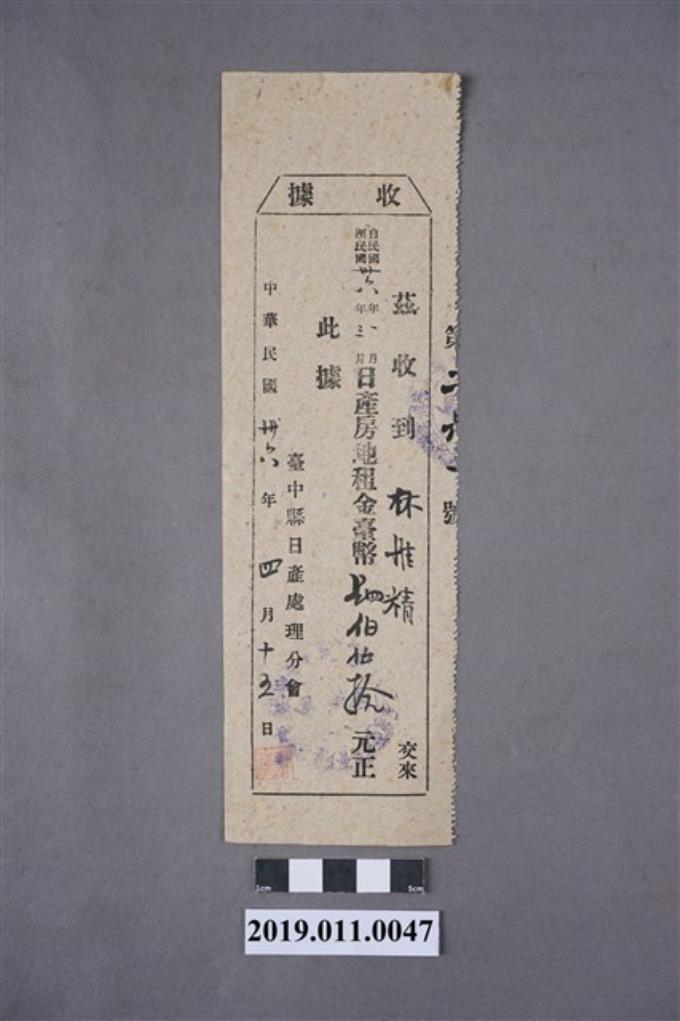 收據
第 號
茲收到 林 精 交來
自民國卅六年一月
至民國 年三月
日產房地租金臺幣肆佰伍拾元正
此據
臺中縣日產處理分會
中華民國卅六年四月十五日
1cm 5cm
2019.011.0047